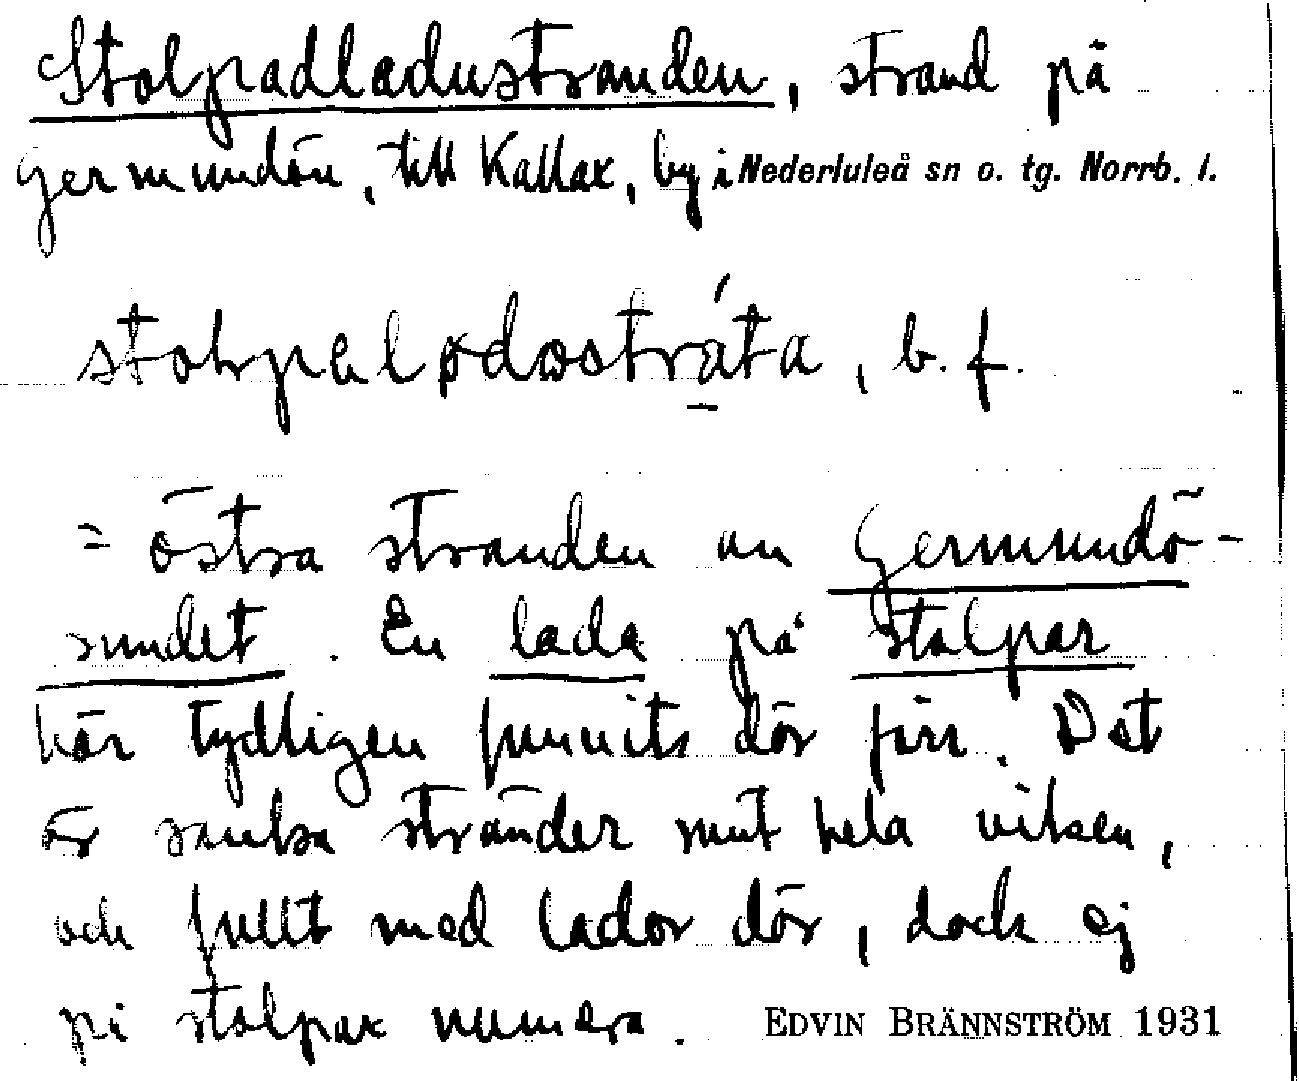 Stolpadladustranden, strand på
Germundön, till Kallax, by i Nederluleå sn o. tg. Norrb. l.
stolpalodostráta, b. f.
= östra stranden av Germundö-
sundet. En lada på stolpar
har tydligen funnits där förr. Det
är sanka stränder runt hela viken,
och fullt med lador där, dock ej
på stolpar numera. EDVIN BRÄNNSTRÖM 1931